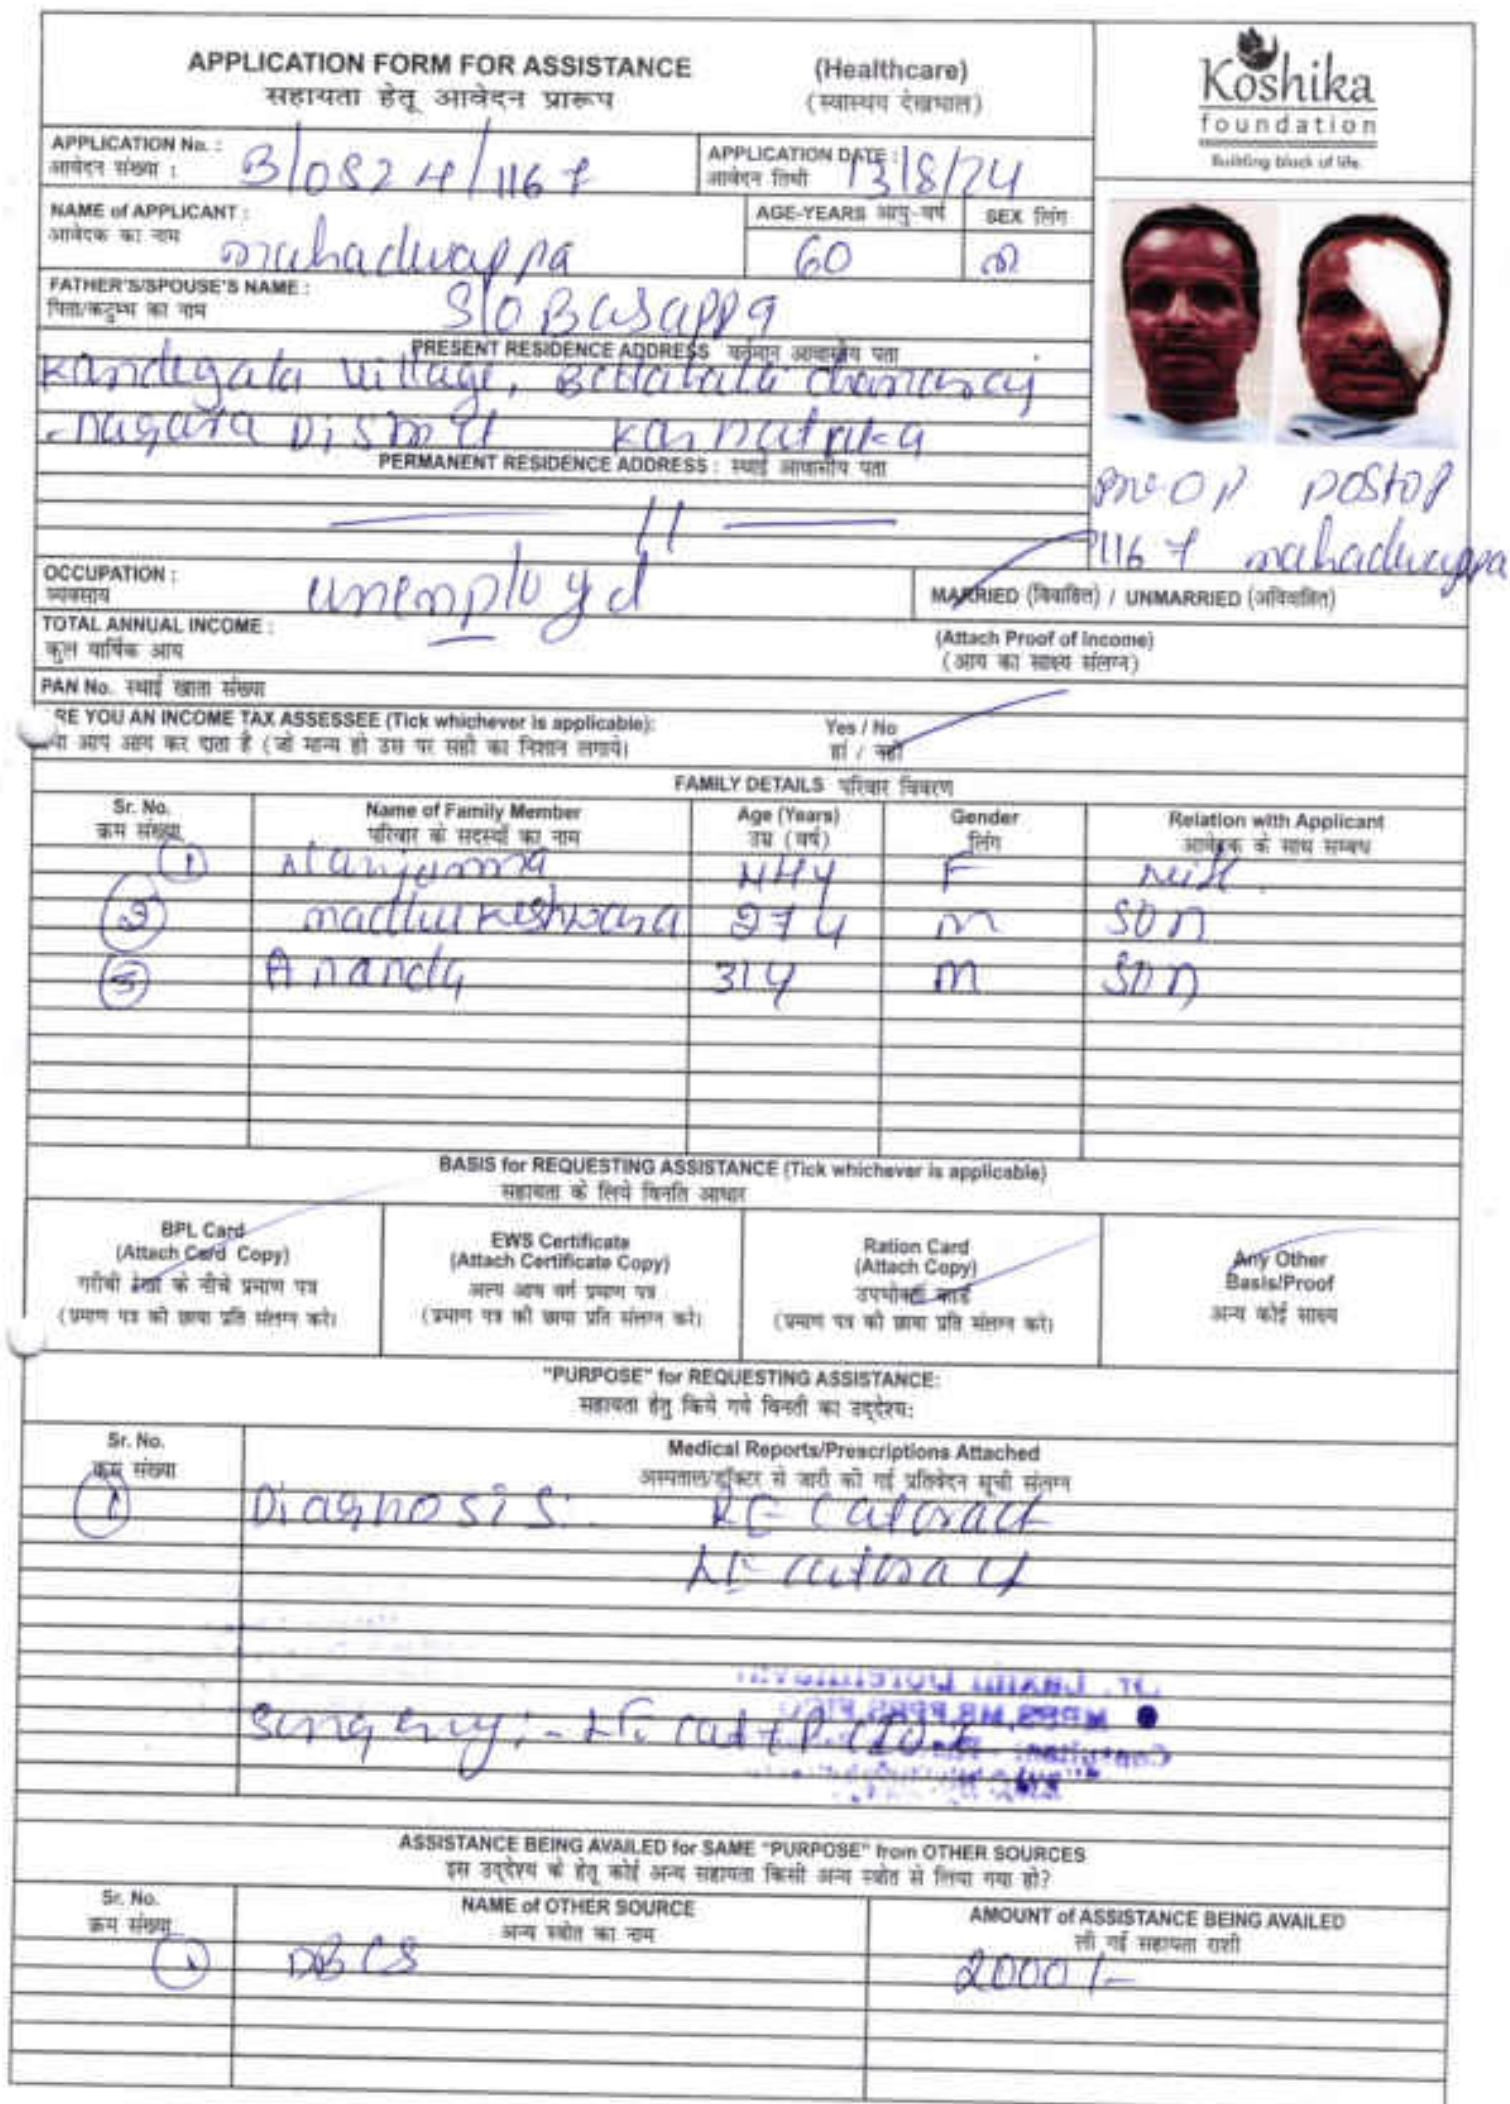 APPLICATION FORM FOR ASSISTANCE (Healthcare)
सहायता हेतू आवेदन प्रारूप (स्वास्थय देखभाल)
Koshika
foundation
Building block of life.
APPLICATION No. : B/0824/1167
आवेदन संख्या :
APPLICATION DATE : 13/8/24
आवेदन तिथी
NAME of APPLICANT : mahadwappa
आवेदक का नाम
AGE-YEARS आयु-वर्ष 60
SEX लिंग m
FATHER'S/SPOUSE'S NAME : S/O Basappa
पिता/कटुम्भ का नाम
PRESENT RESIDENCE ADDRESS वर्तमान आवासीय पता
Kandegala village,
-nagara District Karnataka
PERMANENT RESIDENCE ADDRESS : स्थाई आवासीय पता
— 11 —
pre-OP postop
1167 mahadwappa
OCCUPATION : unemployd
व्यवसाय
MARRIED (विवाहित) / UNMARRIED (अविवाहित)
TOTAL ANNUAL INCOME :
कुल वार्षिक आय
(Attach Proof of Income)
(आय का साक्ष्य संलग्न)
PAN No. स्थाई खाता संख्या
RE YOU AN INCOME TAX ASSESSEE (Tick whichever is applicable): Yes / No
आप आय कर दाता है (जो मान्य हो उस पर सही का निशान लगाये। हां / नहीं
FAMILY DETAILS परिवार विवरण
Sr. No. Name of Family Member Age (Years) Gender Relation with Applicant
क्रम संख्या परिवार के सदस्यों का नाम उम्र (वर्ष) लिंग आवेदक के साथ सम्बंध
1 44y F
2 27y m son
3 Ananda 31y m son
BASIS for REQUESTING ASSISTANCE (Tick whichever is applicable)
सहायता के लिये विनति आधार
BPL Card
(Attach Card Copy)
गरीबी रेखा के नीचे प्रमाण पत्र
(प्रमाण पत्र की छाया प्रति संलग्न करे।
EWS Certificate
(Attach Certificate Copy)
अल्प आय वर्ग प्रमाण पत्र
(प्रमाण पत्र की छाया प्रति संलग्न करे।
Ration Card
(Attach Copy)
उपभोक्ता कार्ड
(प्रमाण पत्र की छाया प्रति संलग्न करे।
Any Other
Basis/Proof
अन्य कोई साक्ष्य
"PURPOSE" for REQUESTING ASSISTANCE:
सहायता हेतु किये गये विनती का उद्देश्य:
Sr. No. Medical Reports/Prescriptions Attached
क्रम संख्या अस्पताल/डॉक्टर से जारी की गई प्रतिवेदन सूची संलग्न
1 Diagnosis: RE Cataract
LE cataract
Surgery:- LE
ASSISTANCE BEING AVAILED for SAME "PURPOSE" from OTHER SOURCES
इस उद्देश्य के हेतू कोई अन्य सहायता किसी अन्य स्त्रोत से लिया गया हो?
Sr. No. NAME of OTHER SOURCE AMOUNT of ASSISTANCE BEING AVAILED
क्रम संख्या अन्य स्त्रोत का नाम ली गई सहायता राशी
1 DBCS 2000/-